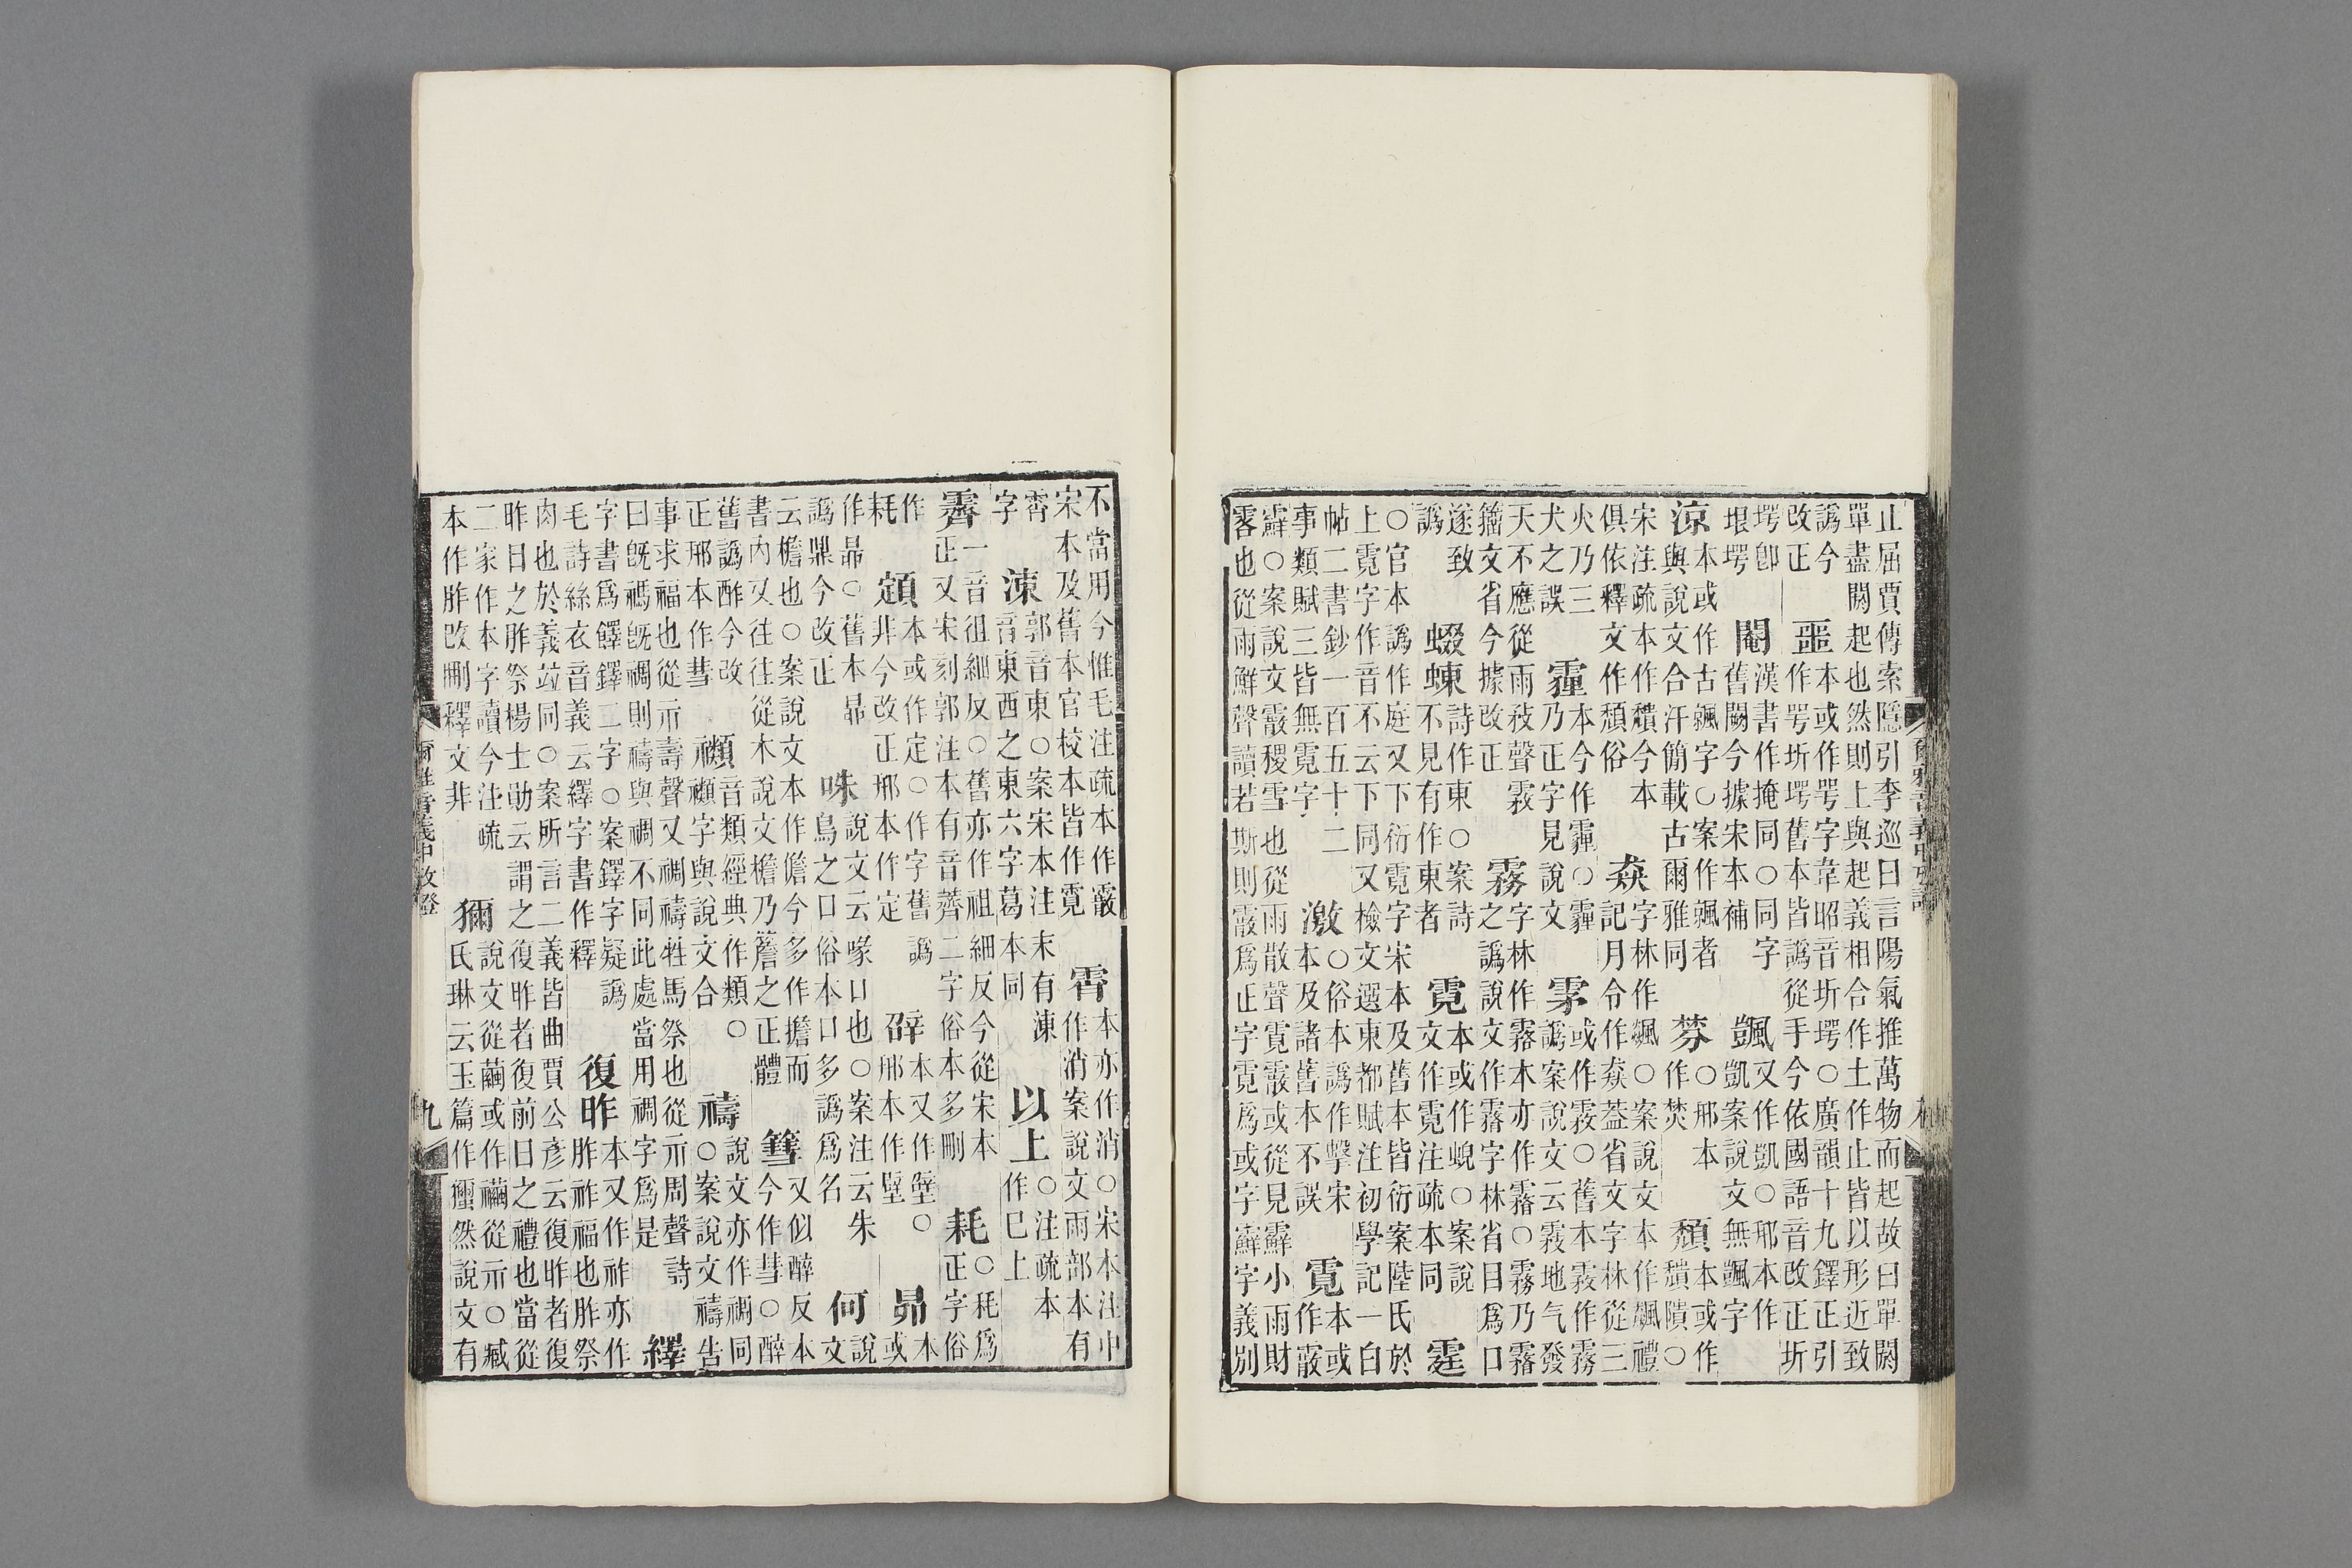 止屈賈傳索隱引李巡曰言陽氣推萬物而起故曰單閼
單盡閼起也然則上與起義相合作土作止皆以形近致
譌今改正 噩 本或作咢字韋昭音圻堮○廣韻十九鐸正引作咢圻堮舊本皆譌從手今依國語音改正圻
堮卽垠堮 閹 漢書作掩同○同字舊闕今據宋本補 颽 又作凱○邢本作凱案說文無颽字
涼 本或作古飆字○案作飆者與說文合汗簡載古爾雅同 棼 ○邢本作焚 頹 本或作穨隤○
宋注疏本作穨今本俱依釋文作頹俗 猋 字林作飆○案說文本作飆禮記月令作猋葢省文字林從三
火乃三犬之誤 霾 本今作霾○霾乃正字見說文 雺 或作霚○舊本霚作霧譌案說文云霚地气發
天不應從雨敄聲霚籀文省今據改正 霧 字林作霿本亦作霿○霧乃霿之譌說文作霿字林省目爲口
遂致譌 蝃蝀 詩作東○案詩不見有作東者 霓 本或作蜺○案說文作霓注疏本同 霆
○官本譌作庭又下衍霓字宋本及舊本皆衍案陸氏於上霓字作音不云下同又檢文選東都賦注初學記一白
帖二書鈔一百五十二事類賦三皆無霓字 激 ○俗本譌作擊宋本及諸舊本不誤 霓 本或作霰
○案說文霰稷雪也從雨散聲霓霰或從見小雨財零也從雨鮮聲讀若斯則霰爲正字霓爲或字字義別
不當用今惟毛注疏本作霰宋本及舊本官校本皆作霓 霄 本亦作消○宋本注中作消案說文雨部本有
霄字 涷 郭音東○案宋本注末有涷音東西之東六字葛本同 以上 ○注疏本作巳上
霽 一音徂細反○舊亦作祖細反今從宋本正又宋刻郭注本有音薺二字俗本多刪 耗 ○秏爲正字俗
作耗 顁 本或作定○作字舊譌非今改正邢本作定 辟 本又作壁○邢本作壁 昴 本或
作昴○舊本昴譌鼎今改正 咮 說文云喙口也○案注云朱鳥之口俗本口多譌爲名 何 說文
云檐也○案說文本作儋今多作擔而書內又往往從木說文檐乃簷之正體 篲 又似醉反本今作彗○醉
舊譌酢今改正邢本作彗 禷 音類經典作類○禷字與說文合 禱 說文亦作禂同○案說文禱告
事求福也從示壽聲又禂禱牲馬祭也從示周聲詩曰旣禡旣禂則禱與禂不同此處當用禂字爲是 繹
字書爲鐸二字○案鐸字疑譌毛詩絲衣音義云繹字書作釋 復昨 本又作祚亦作胙祚福也胙祭
肉也於義竝同○案所言二義皆曲賈公彥云復昨者復昨日之胙祭楊士勛云謂之復昨者復前日之禮也當從
二家作本字讀今注疏本作胙改刪釋文非 獮 說文從繭或作從示○臧氏琳云玉篇作玂然說文有
爾雅音義中攷證
九